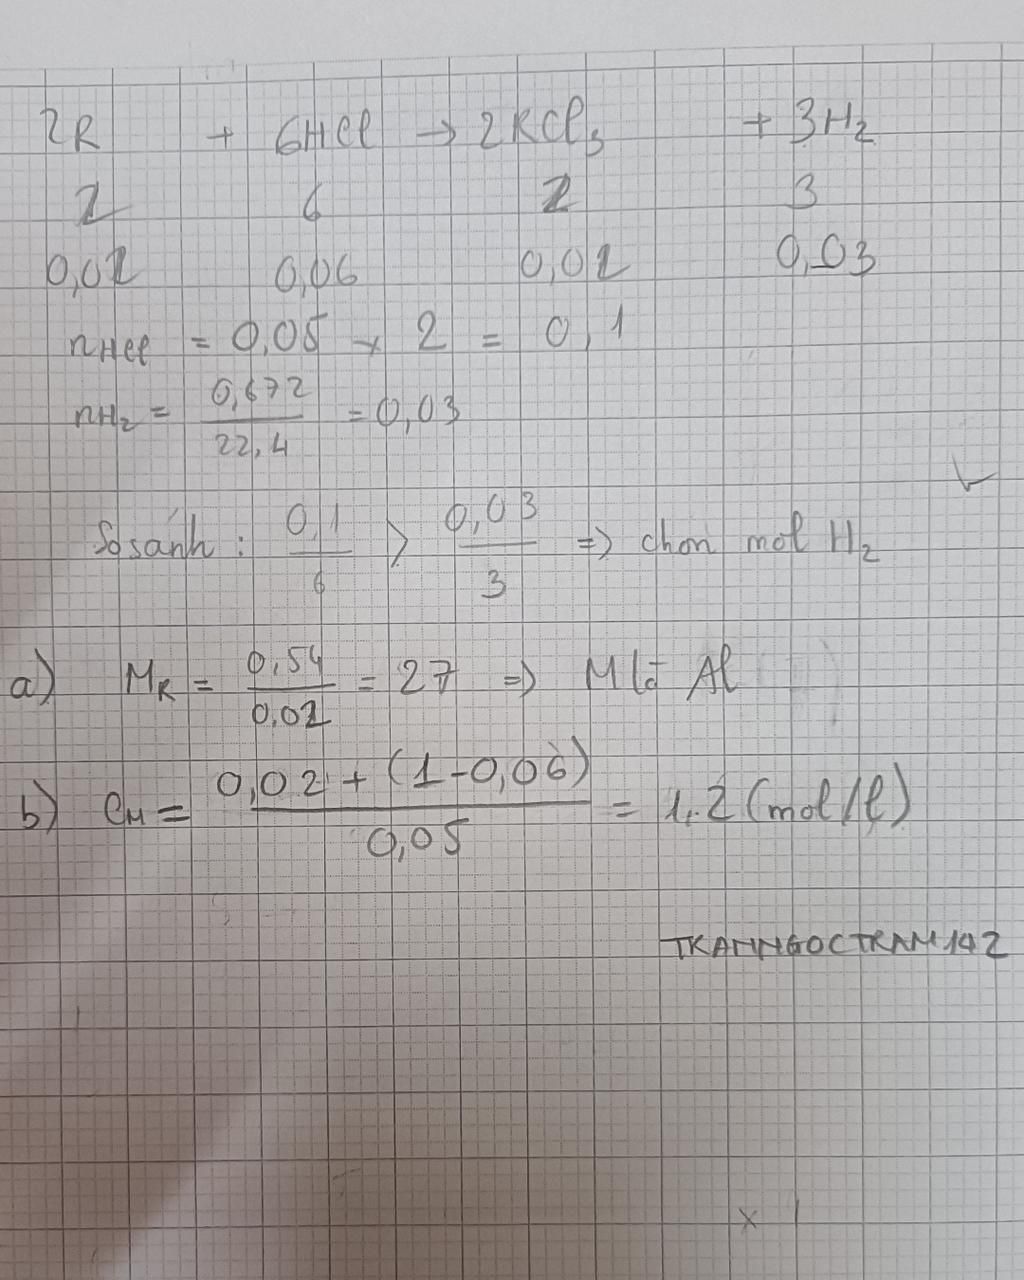 2R + 6HCl → 2RCl₃ + 3H₂
2 6 2 3
0,02 0,06 0,02 0,03
nHCl = 0,05 x 2 = 0,1
nH₂ = 0,672/22,4 = 0,03
So sánh : 0,1/6 > 0,03/3 => chọn mol H₂
a) M_R = 0,54/0,02 = 27 => M là Al
b) C_M = 0,02 + (1-0,06)/0,05 = 1,2 (mol/l)
TRANNGOCTRAM142
x 1